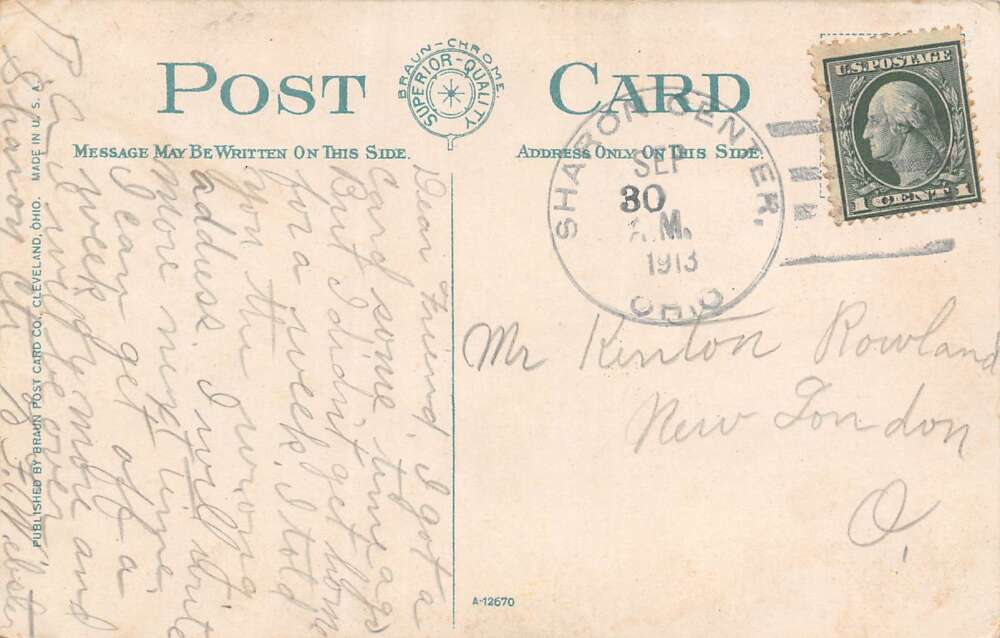 POST CARD
BRAUN-CHROME
SUPERIOR-QUALITY
MESSAGE MAY BE WRITTEN ON THIS SIDE.
ADDRESS ONLY ON THIS SIDE.
U.S. POSTAGE
1 CENT 1
SHARON CENTER,
SEP
30
A.M.
1913
OHIO
Mr Kenton Rowland
New London
O,
Dear Friend, I got a
Card some time ago
But I didn't get home
for a week. I told
you the wrong
address I will write
more next time
I can get off a
week
Sharon
PUBLISHED BY BRAUN POST CARD CO., CLEVELAND, OHIO. MADE IN U. S. A.
A-12670